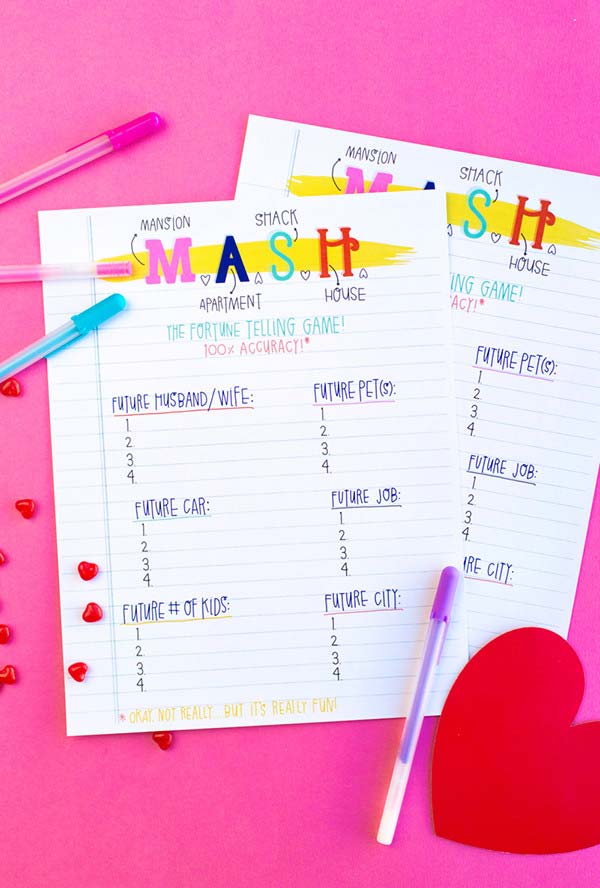 MANSION SHACK
MASH
APARTMENT HOUSE
THE FORTUNE TELLING GAME!
100% ACCURACY!*
FUTURE HUSBAND/WIFE:
1.
2.
3.
4.
FUTURE PET(S):
1.
2.
3.
4.
FUTURE CAR:
1.
2.
3.
4.
FUTURE JOB:
1.
2.
3.
4.
FUTURE # OF KIDS:
1.
2.
3.
4.
FUTURE CITY:
1.
2.
3.
4.
* OKAY, NOT REALLY... BUT IT'S REALLY FUN!
MANSION SHACK
MASH
HOUSE
ING GAME!
ACY!*
FUTURE PET(S):
1.
2.
3.
4.
FUTURE JOB:
1.
2.
3.
4.
RE CITY: